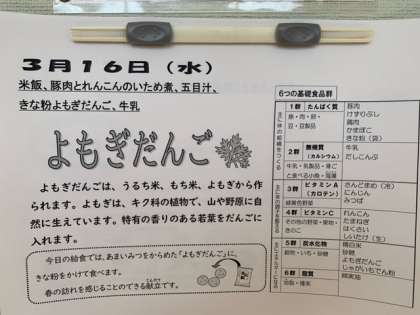 3月16日（水）
米飯、豚肉とれんこんのいため煮、五目汁、
きな粉よもぎだんご、牛乳
よもぎだんご
よもぎだんごは、うるち米、もち米、よもぎから作
られます。よもぎは、キク科の植物で、山や野原に自
然に生えています。特有の香りのある若葉をだんごに
入れます。
今日の給食では、あまいみつをからめた「よもぎだんご」に、
きな粉をかけて食べます。
春の訪れを感じることのできる献立です。
6つの基礎食品群
1群 たんぱく質
魚・肉・卵・
豆・豆製品
豚肉
けずりぶし
鶏肉
かまぼこ
きな粉（袋）
2群 無機質
（カルシウム）
牛乳・乳製品・骨ご
と食べる小魚・海藻
牛乳
だしこんぶ
3群 ビタミンA
（カロテン）
緑黄色野菜
さんどまめ（冷）
にんじん
みつば
4群 ビタミンC
その他の野菜・果物・
きのこ
れんこん
たまねぎ
はくさい
しいたけ（生）
5群 炭水化物
穀類・いも・砂糖
精白米
砂糖
よもぎだんご
じゃがいもでん粉
6群 脂質
油脂・種実
綿実油